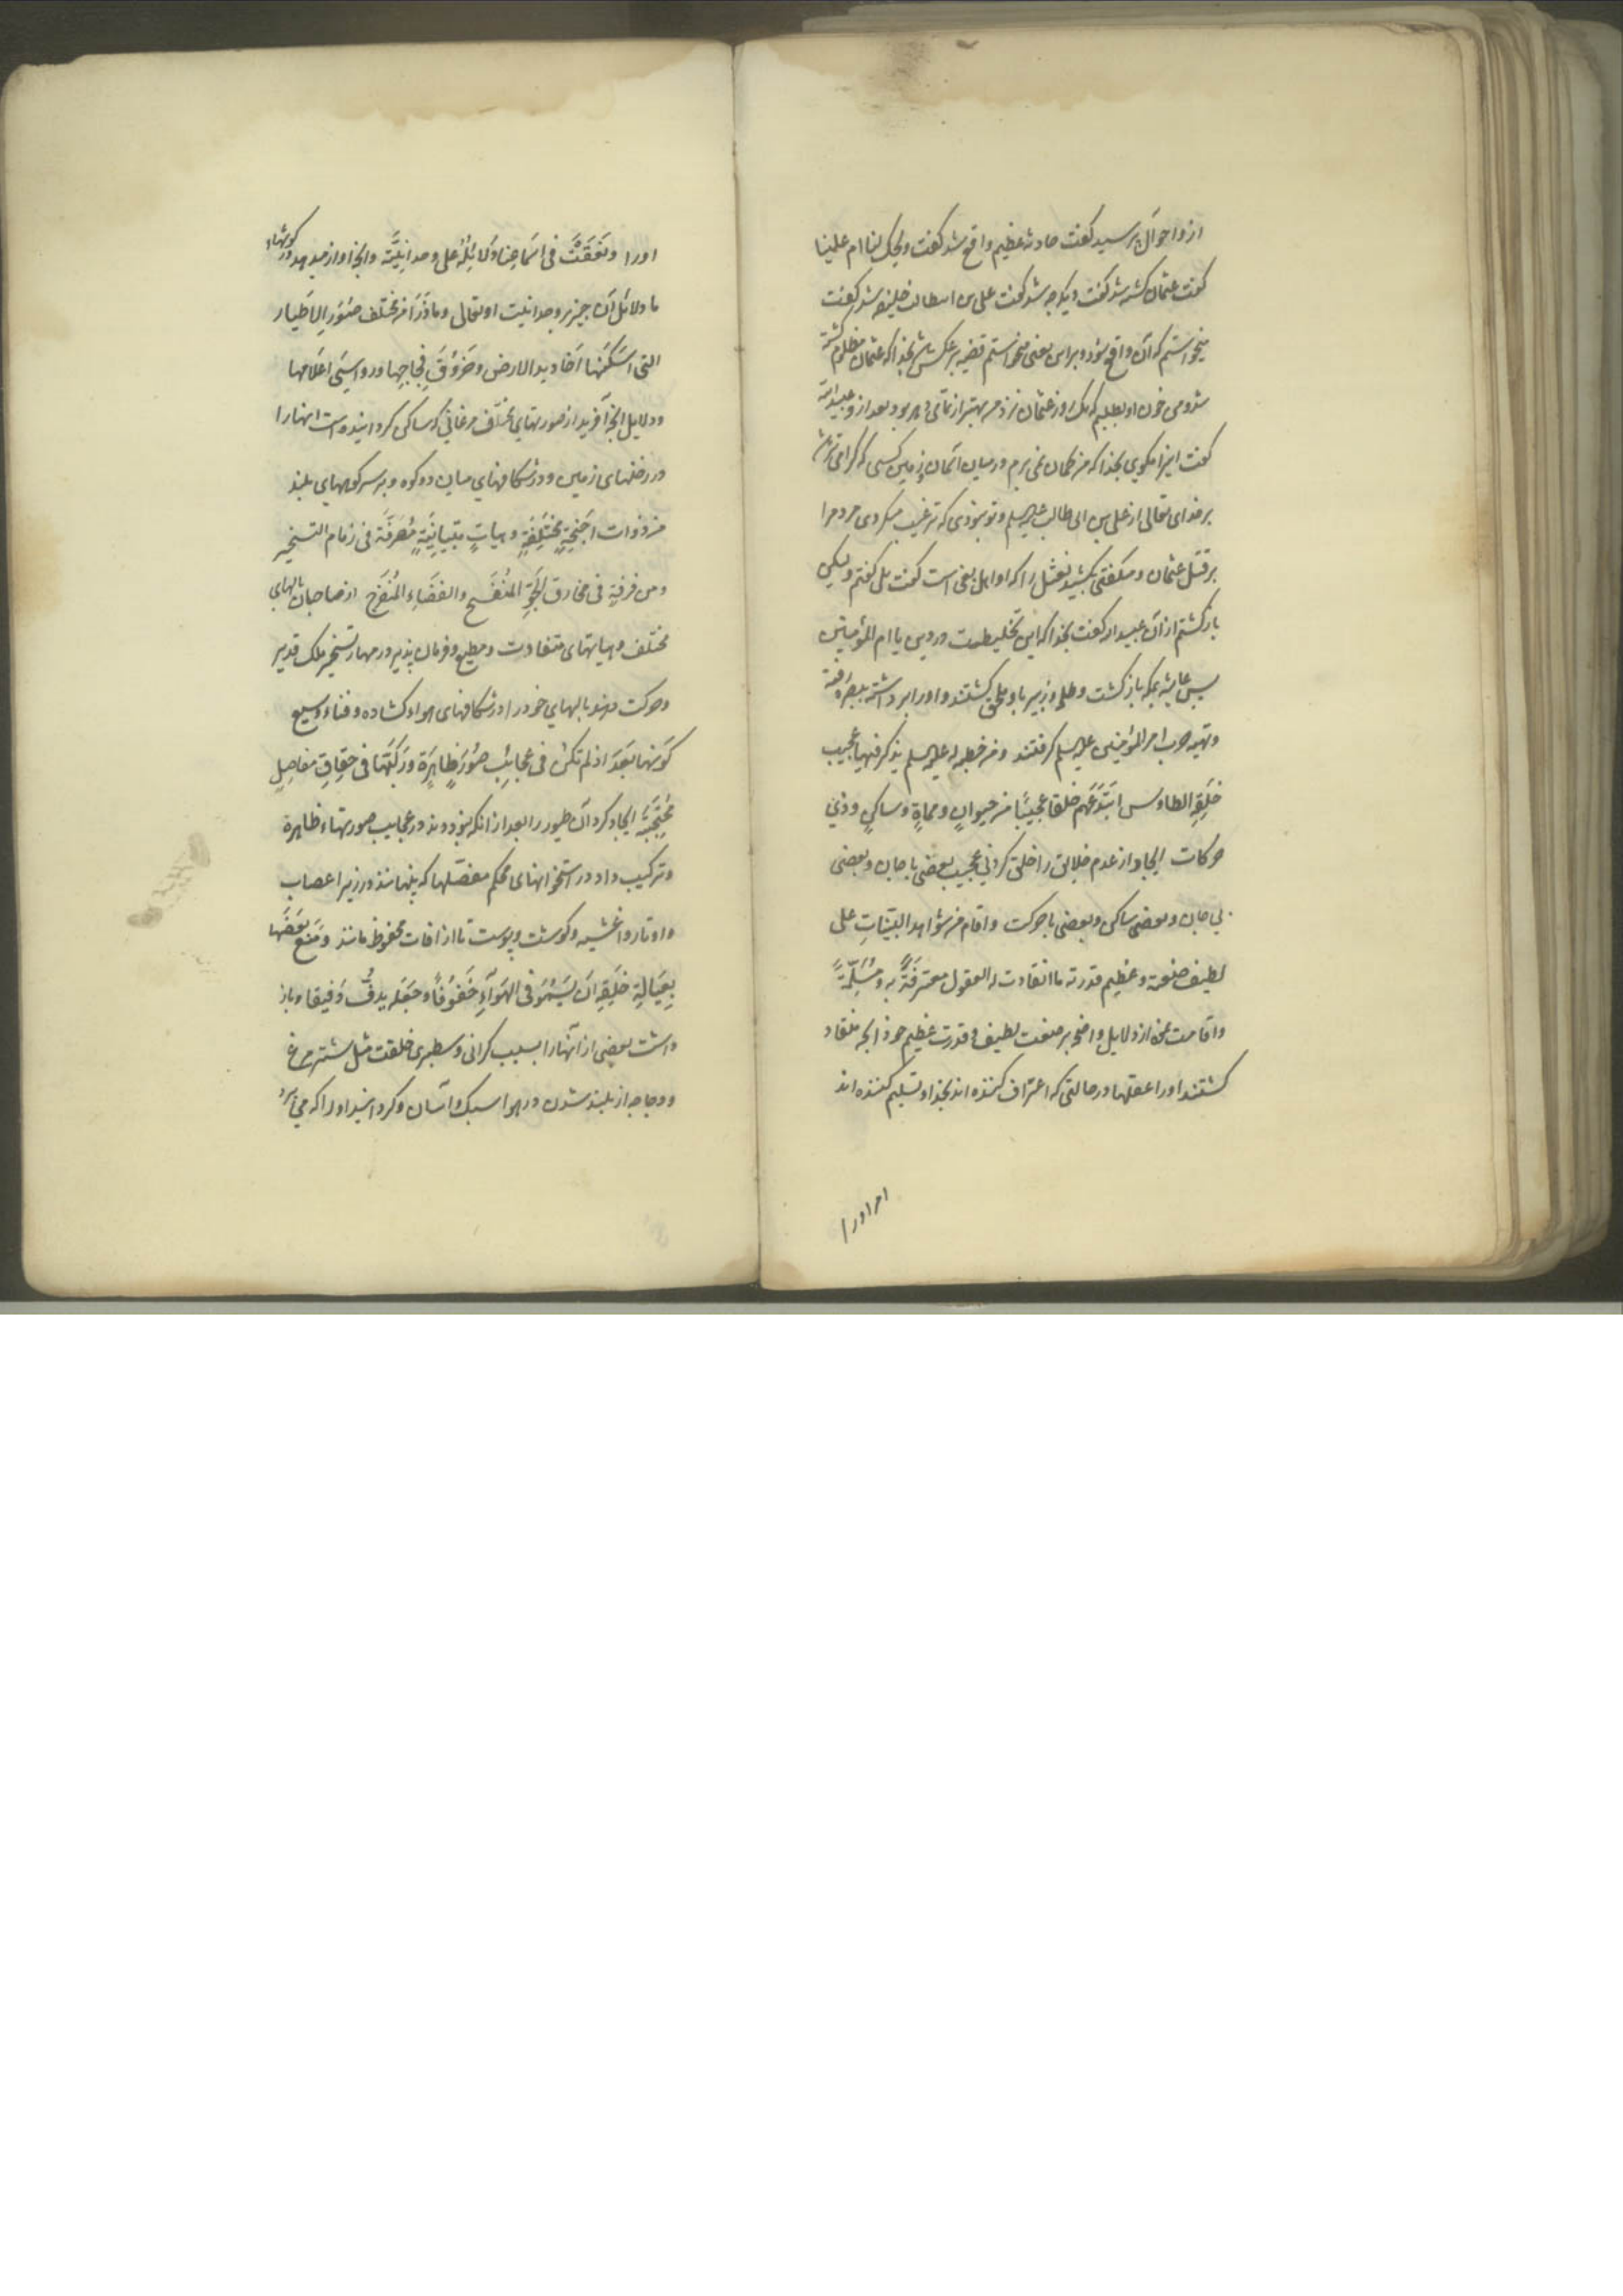 ازو احوال پرسید کفت حادثه عظیم واقع شد کفت ویحک لنا ام علینا
کفت عثمان کشته شد کفت دیکر چه شد کفت علی بن ابیطالب خلیفه شد کفت
میخواستم که آن واقع نبود و براین یعنی میخواستم قضیه بر عکس باشد بخدا که عثمان مظلوم کشته
شد و من خون او بطلبم که یک روز عثمان نزد من بهتر از تمامی دهر بود بعد از و عبید الله
کفت این را مکوی بخدا که من کمان نمی برم در میان آسمان و زمین کسی که کرامی تر باشد
بر خدای تعالی از علی بن ابی طالب علیه السلم و تو نبودی که ترغیب میکردی مردم را
بر قتل عثمان و میکفتی بکشید نعثل را که او اهل بغی است کفت بلی کفتم ولیکن
بازکشتم از آن عبید الله کفت بخدا که این تخلیطست در دین یا ام المؤمنین
پس عایشه بمکه بازکشت و طلحه و زبیر باو ملحق کشتند و او را برداشته ببصره رفتند
و تهیه حرب امیر المؤمنین علیه السلم کرفتند و من خطبه له علیه السلم یذکر فیها عجیب
خَلقِه الطاوس ابتدَعَهم خلقا عجیبًا من حیوانٍ و مماتٍ و ساکنٍ و ذی
حرکات ایجاد از عدم خلایق را خلق کردنی عجیب بعضی با جان و بعضی
بی جان و بعضی ساکن و بعضی با حرکت و اقام من شواهد البیّناتِ علی
لطیف صنعته و عظیم قدرته ما انقادت له العقول معترفَةً به و مُسَلِّمةً
و اقامت نمود از دلایل واضحه بر صنعت لطیف و قدرت عظیم خود آنچه منقاد
کشتند او را عقلها در حالتی که اعتراف کننده اند بخدا و تسلیم کننده اند
امر او را
او را و نَعَقَتْ فی اسماعنا دَلائِلُهُ علی وحدانِیَّته و آنچه آواز میدهد در کوشهاء
ما دلائل آن چیز بر وحدانیت او تعالی و ما ذَرَأ من مختلف صُوَرِ الاَطیار
التی اَسکَنَها اَخادید الارض و خروُقَ فِجاجِها و رواسِیَ اعلامها
و دلایل آنچه آفرید از صورتهای مختلف مرغانی که ساکن کردانیده است انها را
در رخنهای زمین و در شکافهای میان دو کوه و بر سر کوههای بلند
من ذوات اَجنِحةٍ مختلِفةٍ و هیاتٍ متباینَةٍ مُصَرَّفَة فی زمام التسخیر
و مرفرفةٍ فی مخارق الجَوِّ المُنفَسِح و الفَضاءِ المُنفَرِج از صاحبان بالهای
مختلف و هیاتهای متفاوت و مطیع و فرمان پذیر در مهار تسخیر ملک قدیر
و حرکت دهند بالهای خود را در شکافهای هواء کشاده و فضاء وسیع
کَوَّنَها بَعدَ اذ لم تکُن فی عجائبِ صُوَرٍ ظاهِرَة و رَکَّبَها فی حِقاقِ مفاصِلٍ
مُحتَجِبَةٍ ایجاد کرد آن طیور را بعد از انکه نبودند در عجایب صورتهاء ظاهرة
و ترکیب داد در استخوانهای محکم مفصلها که پنهانند در زیر اعصاب
و اوتار و اغشیه و کوشت و پوست تا از افات محفوظ مانند و مَنَعَ بَعضَها
بِعَبالةِ خلَقِه اَن یَسمُوَ فی الهَواءِ خُفوُفاً و جَعَله یدِفُّ دَفیفا و باز
داشت بعضی از آنها را بسبب کرانی و سطبری خلقت مثل شتر مرغ
و دجاجه از بلند شدن در هوا سبک و آسان و کردانید او را که می پرد